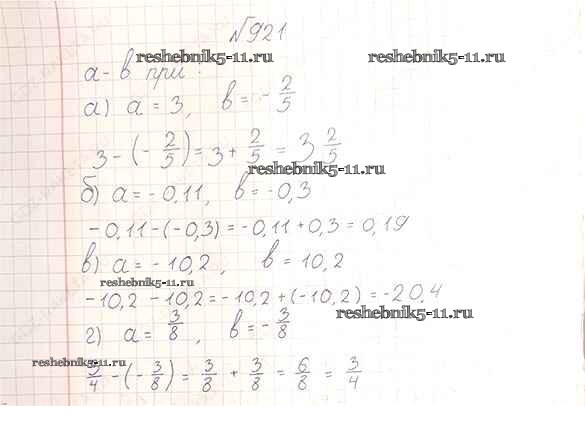 №921
reshebnik5-11.ru reshebnik5-11.ru
a - b при:
а) a = 3, b = - 2/5
3 - (- 2/5) = 3 + 2/5 = 3 2/5
reshebnik5-11.ru
б) a = - 0,11, b = -0,3
- 0,11 - (-0,3) = -0,11 + 0,3 = 0,19
в) a = - 10,2, b = 10,2
reshebnik5-11.ru
-10,2 - 10,2 = - 10,2 + (-10,2) = -20,4
reshebnik5-11.ru
г) a = 3/8, b = - 3/8
reshebnik5-11.ru
3/4 - (- 3/8) = 3/8 + 3/8 = 6/8 = 3/4